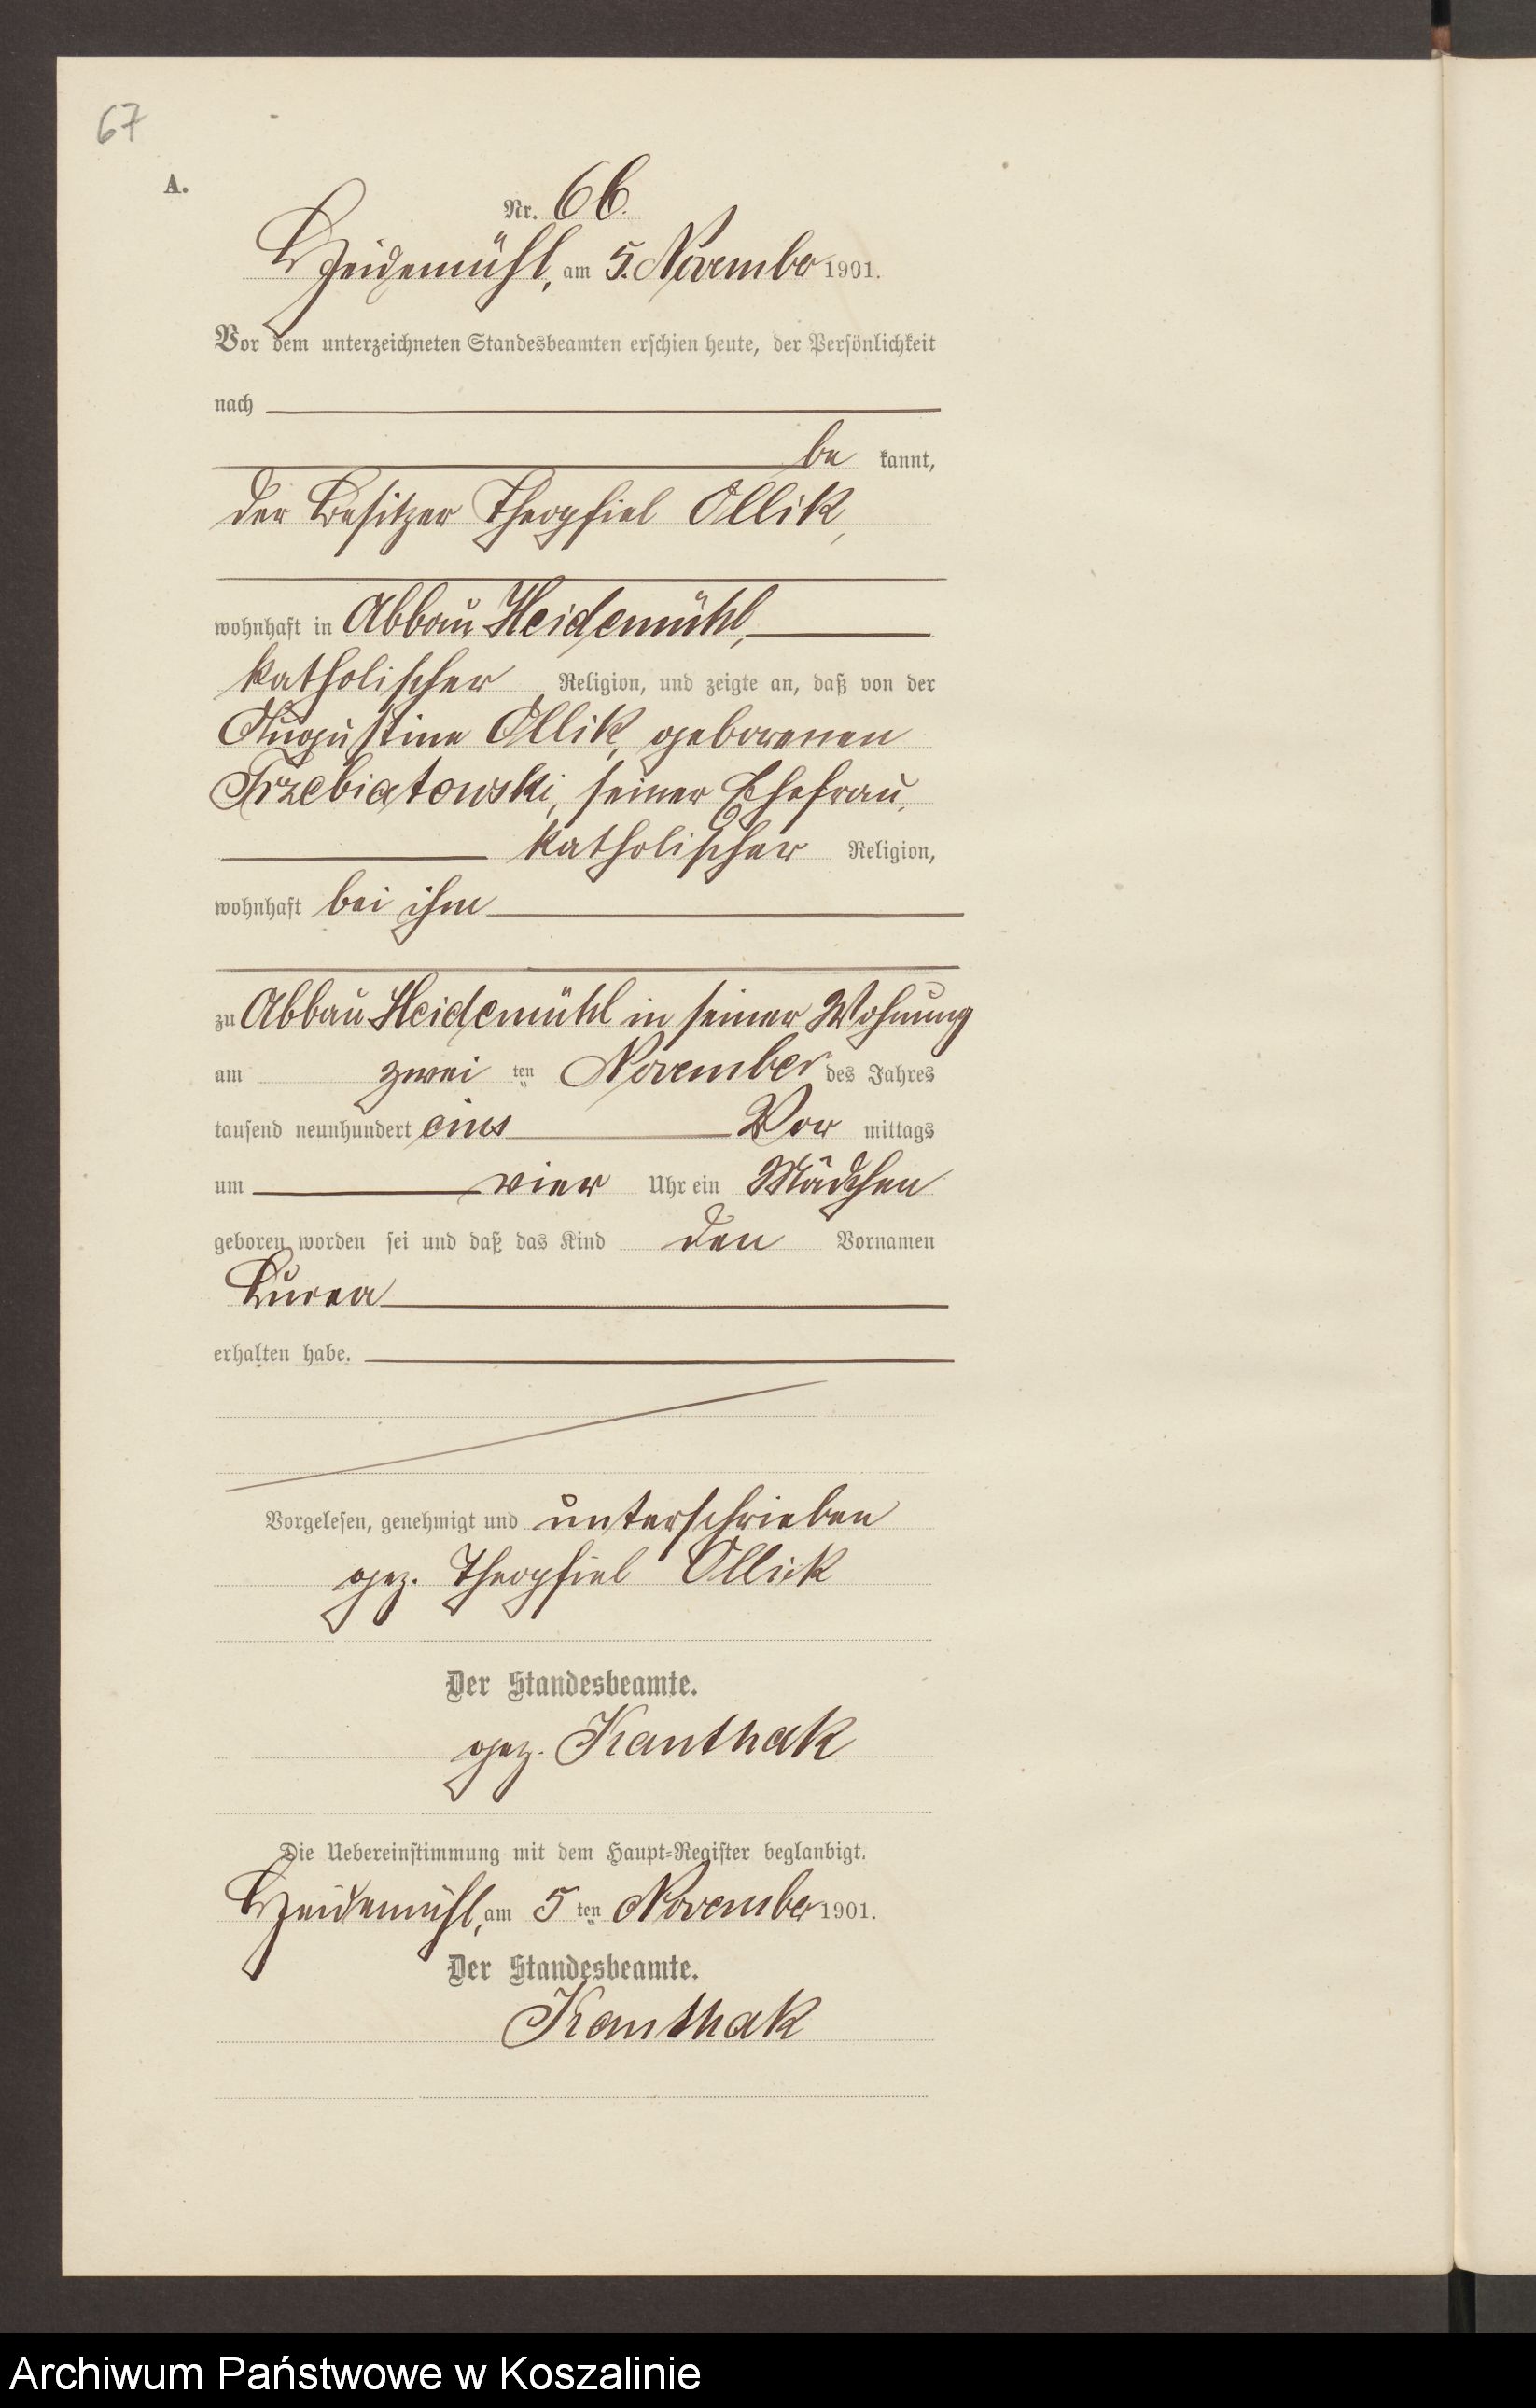 67
A.
Nr. 66.
Heidemühl, am 5. November 1901.
Vor dem unterzeichneten Standesbeamten erschien heute, der Persönlichkeit
nach
be kannt,
der Besitzer Theophiel Ollik,
wohnhaft in Abbau Heidemühl,
katholischer Religion, und zeigte an, daß von der
Augustine Ollik, geborenen
Trzebiatowski, seiner Ehefrau,
katholischer Religion,
wohnhaft bei ihm
zu Abbau Heidemühl in seiner Wohnung
am zwei ten November des Jahres
tausend neunhundert eins Vor mittags
um vier Uhr ein Mädchen
geboren worden sei und daß das Kind den Vornamen
erhalten habe.
Vorgelesen, genehmigt und unterschrieben
gez. Theophiel Ollick
Der Standesbeamte.
gez. Kanthak
Die Uebereinstimmung mit dem Haupt-Register beglaubigt.
Heidemühl, am 5 ten November 1901.
Der Standesbeamte.
Kanthak
Archiwum Państwowe w Koszalinie